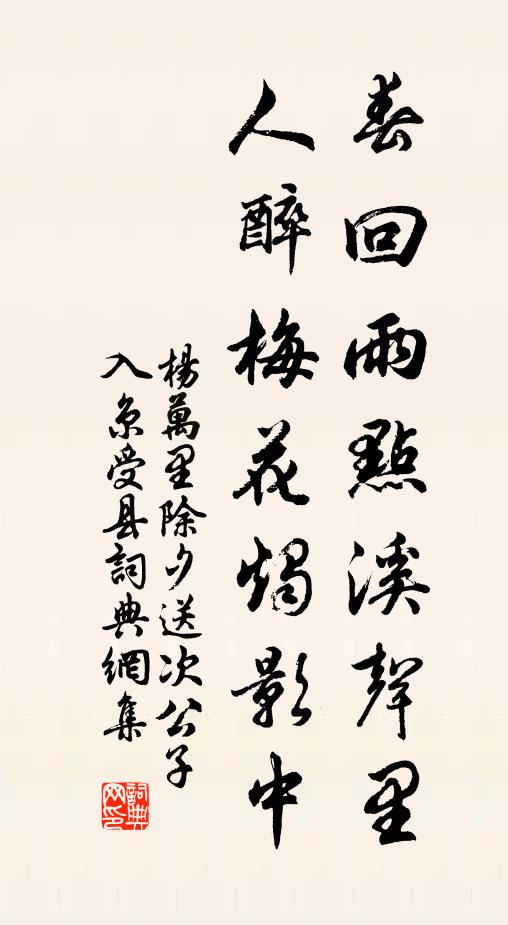 春回雨點溪聲里
人醉梅花燭影中
楊萬里除夕送次公子
入京受县詞典網集
詞典网印